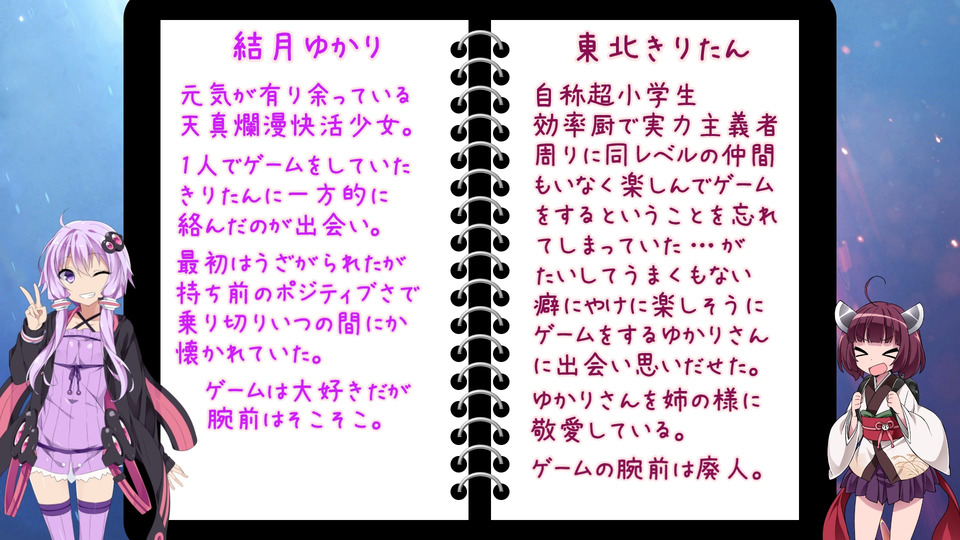 結月ゆかり
元気が有り余っている
天真爛漫快活少女。
1人でゲームをしていた
きりたんに一方的に
絡んだのが出会い。
最初はうざがられたが
持ち前のポジティブさで
乗り切りいつの間にか
懐かれていた。
ゲームは大好きだが
腕前はそこそこ。
東北きりたん
自称超小学生
効率厨で実力主義者
周りに同レベルの仲間
もいなく楽しんでゲーム
をするということを忘れ
てしまっていた…が
たいしてうまくもない
癖にやけに楽しそうに
ゲームをするゆかりさん
に出会い思いだせた。
ゆかりさんを姉の様に
敬愛している。
ゲームの腕前は廃人。